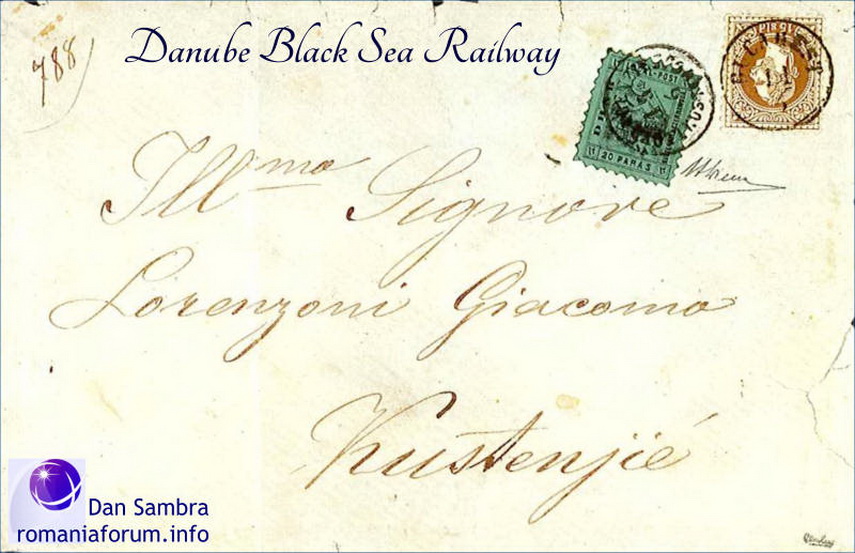 Danube Black Sea Railway
788
LOCAL-POST
20 PARAS
BUCAREST
Ill.mo Signore
Lorenzoni Giacomo
Kustenjié
Dan Sambra
romaniaforum.info